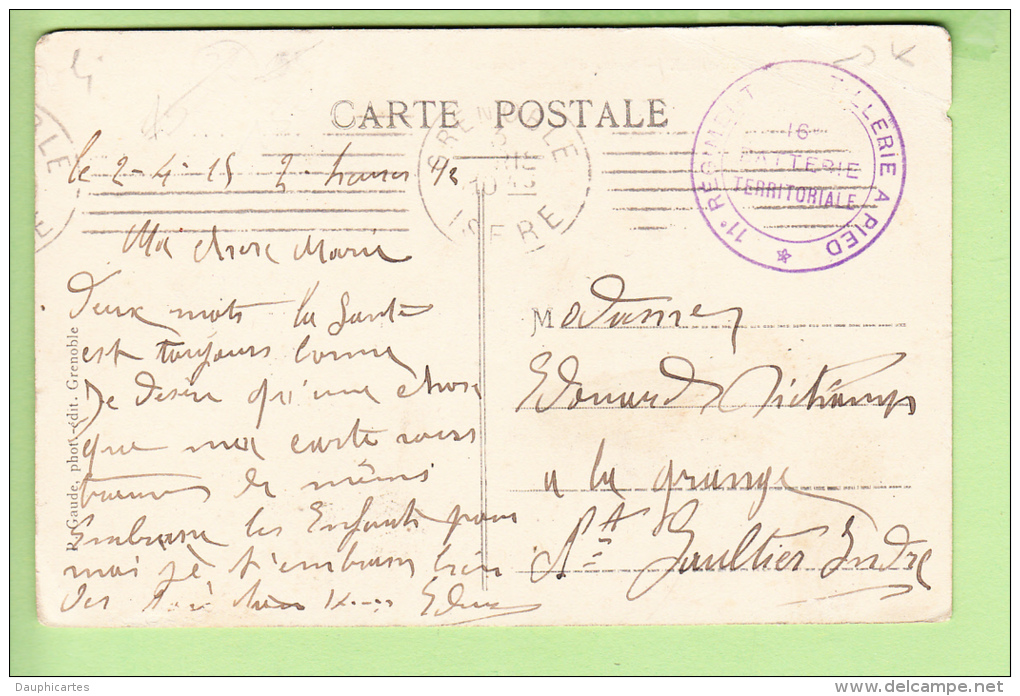 CARTE POSTALE
GRENOBLE
ISERE
11e REGIMENT ARTILLERIE A PIED
16
BATTERIE
TERRITORIALE
le 2-4-15 2 heures 1/2
Ma chere Marie
Deux mots la santé
est toujours bonne
Je desire qu'une chose
que ma carte vous
trouve de même
Embrasse les Enfants pour
moi je t'embrasse bien
Edouard
Madame
Edouard
a la grange
St Gaultier Indre
R. Gaude, phot.-édit. Grenoble
Dauphicartes
www.delcampe.net